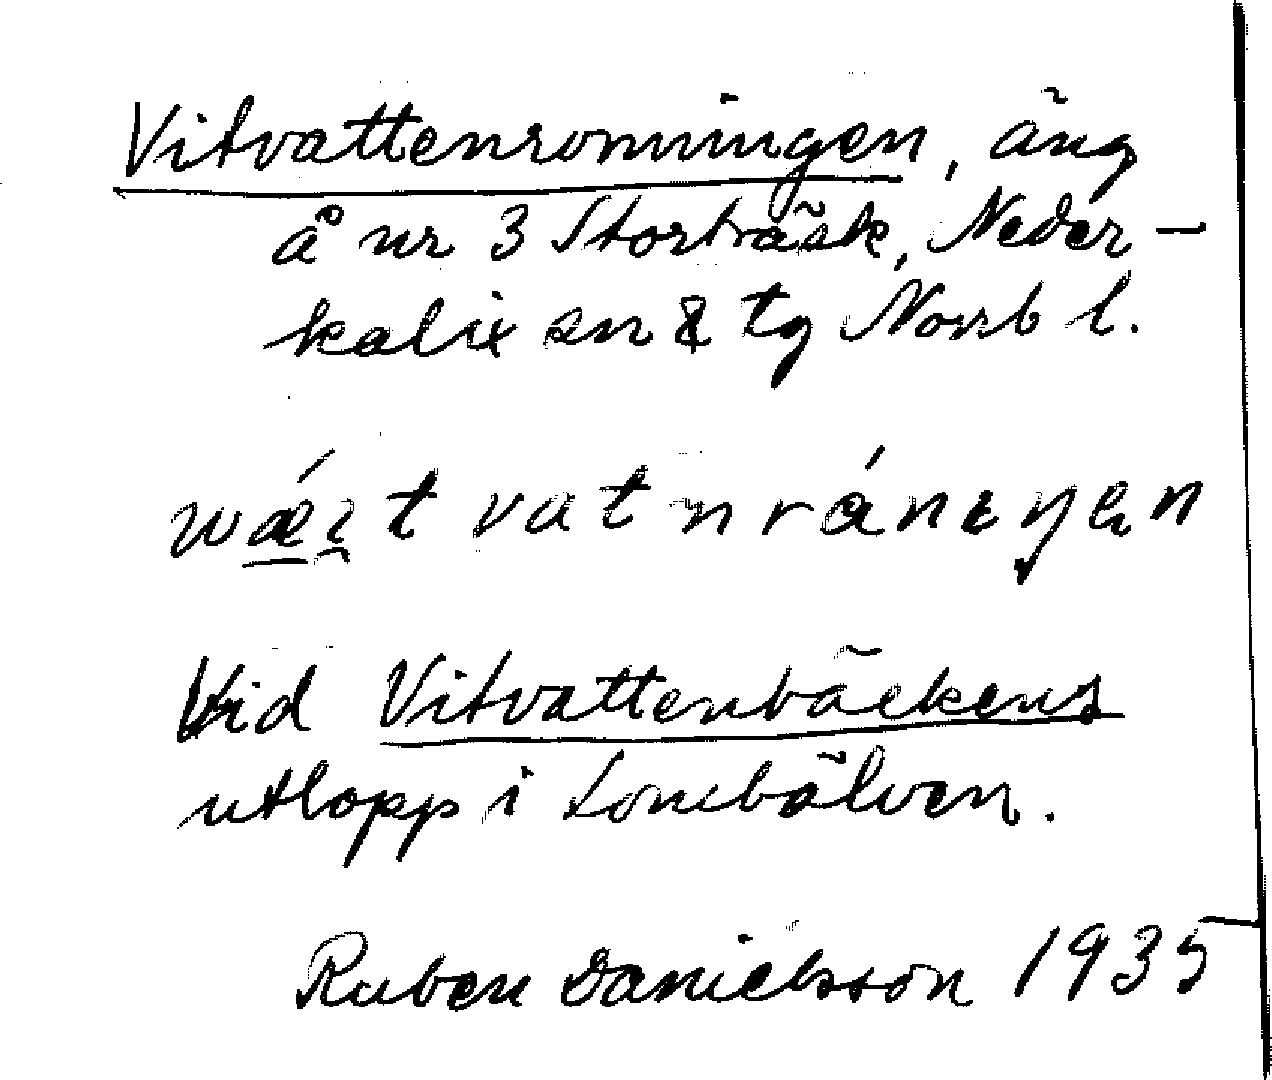 Vitvattenronningen, äng
å nr 3 Storträsk, Neder-
kalix sn & tg Norrb l.
Vid Vitvattenbäckens
utlopp i Lombälven.
Ruben Danielsson 1935